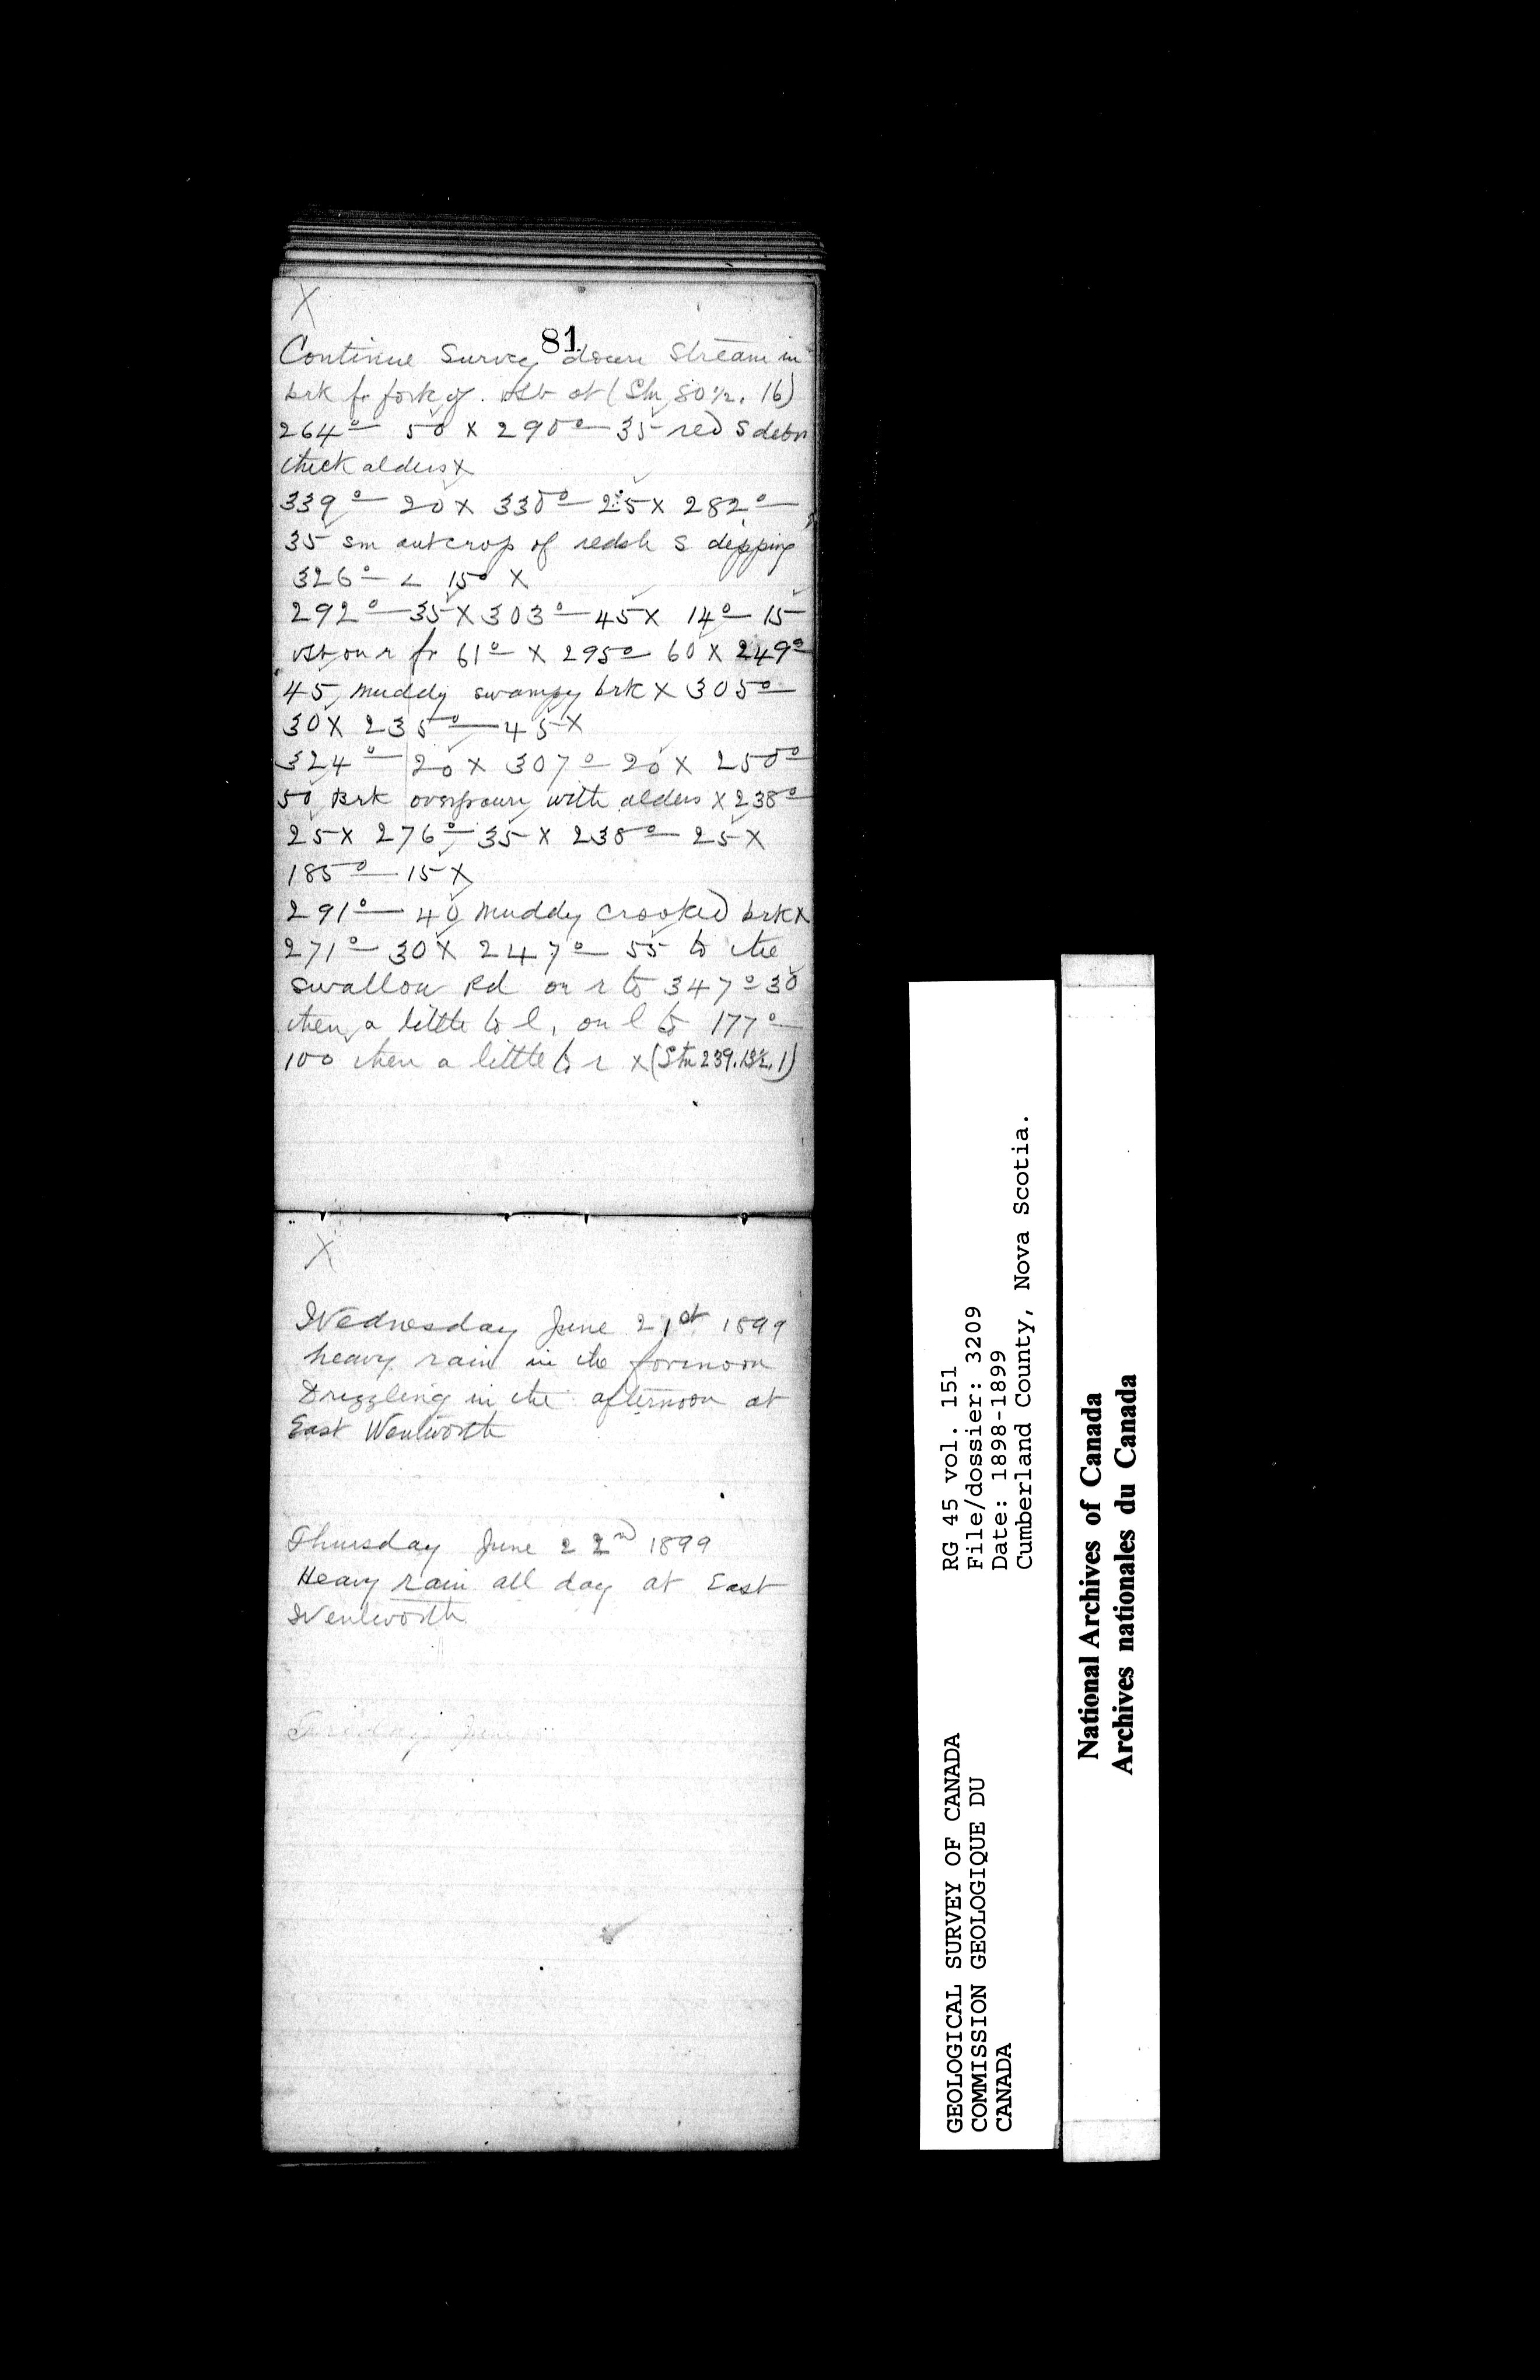 X
81
Continue Survey down Stream in
brk fr fork of. at (Stn 80½. 16)
264° 50 X 290° 35 red S debri
thick alders X
339° 20 X 330° 25 X 282°
35 sm outcrop of redsh S dipping
326° < 15° X
292° 35 X 303° 45 X 14° 15
on r fr 61° X 295° 60 X 249°
45 muddy swampy brk X 305°
30 X 235° 45 X
324° 20 X 307° 20 X 250°
50 Brk overgrown with alders X 238°
25 X 276° 35 X 238° 25 X
185° 15 X
291° 40 Muddy crooked brk X
271° 30 X 247° 55 to the
Swallow Rd on r to 347° 30
then a little to l, on l to 177°
100 then a little to r X (Stn 239. 13½. 1)
X
Wednesday June 21st 1899
heavy rain in the forenoon
Drizzling in the afternoon at
East Wentworth
Thursday June 22nd 1899
Heavy rain all day at East
Wentworth
June
GEOLOGICAL SURVEY OF CANADA
COMMISSION GEOLOGIQUE DU
CANADA
RG 45 vol. 151
File/dossier: 3209
Date: 1898-1899
Cumberland County, Nova Scotia.
National Archives of Canada
Archives nationales du Canada